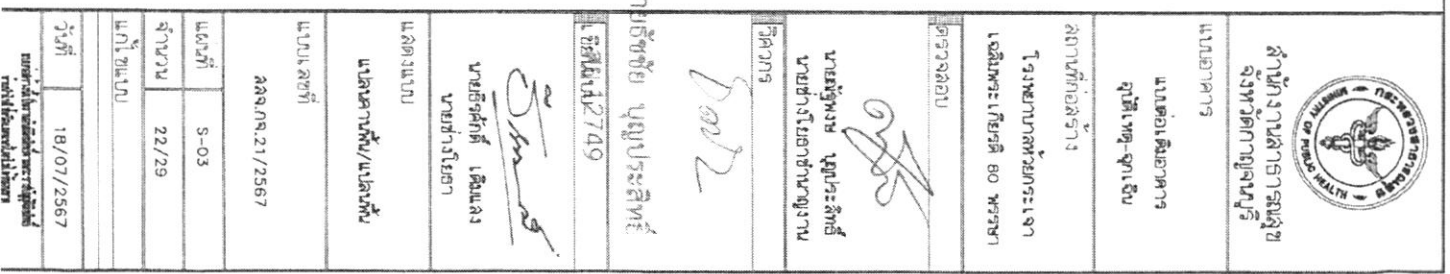 MINISTRY OF PUBLIC HEALTH
สำนักงานสาธารณสุข
จังหวัดกาญจนบุรี
แบบอาคาร
แบบต่อเติมอาคาร
อุบัติเหตุ-ฉุกเฉิน
สถานที่ก่อสร้าง
โรงพยาบาลห้วยกระเจา
เฉลิมพระเกียรติ 80 พรรษา
ตรวจสอบ
บุญประสิทธิ์
นายช่างโยธาชำนาญงาน
วิศวกร
ายธัชชัย บุญประสิทธิ์
12749
เขียนแบบ
นายธีรศักดิ์ เติมแลง
นายช่างโยธา
แสดงแบบ
แปลนคานพื้น/แปลนพื้น
แบบเลขที่
สสจ.กจ.21/2567
แผ่นที่ S-03
จำนวน 22/29
แก้ไขแบบ
วันที่ 18/07/2567